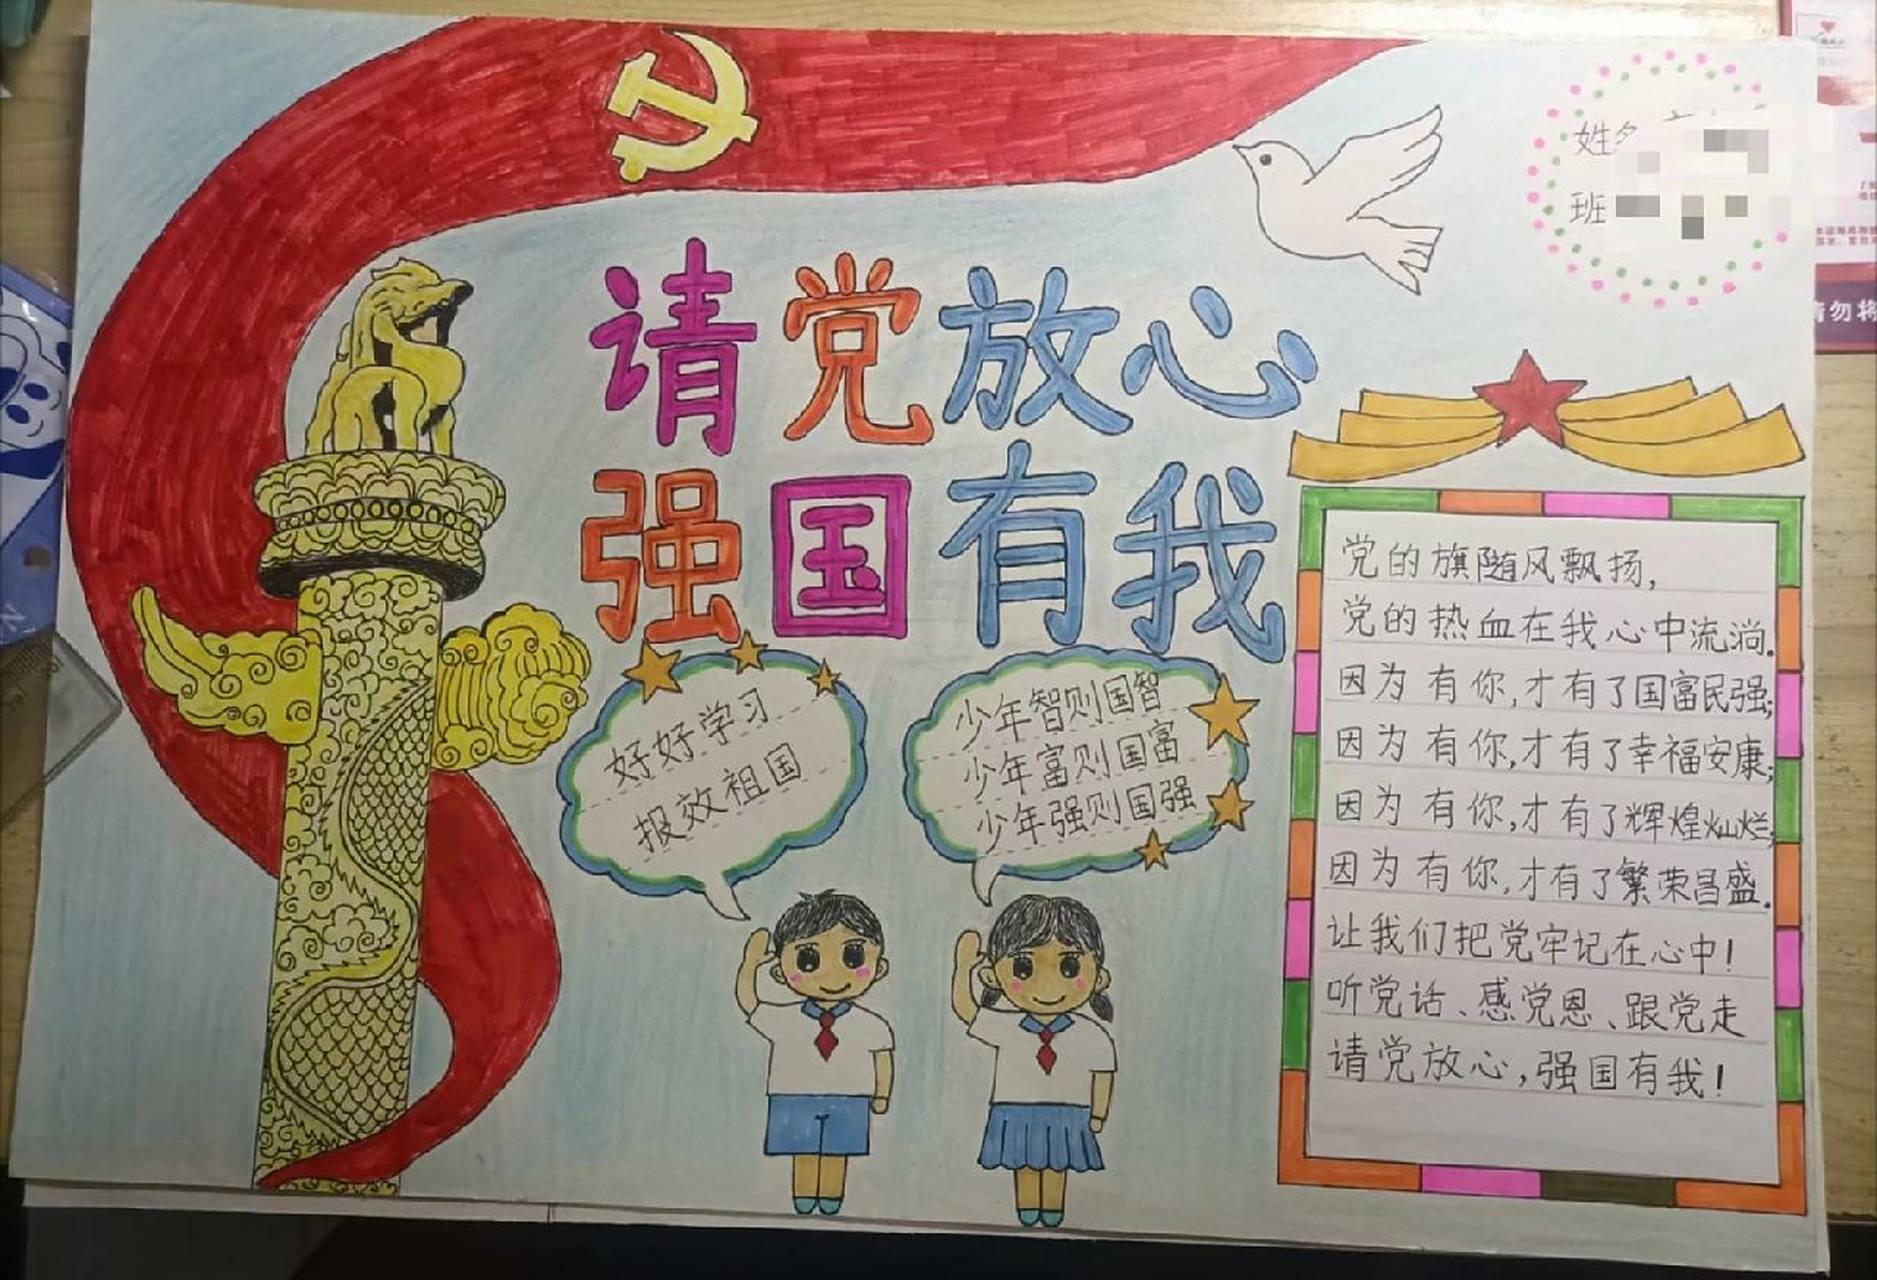 姓名
班
请党放心
强国有我
好好学习
报效祖国
少年智则国智
少年富则国富
少年强则国强
党的旗随风飘扬,
党的热血在我心中流淌.
因为有你,才有了国富民强;
因为有你,才有了幸福安康;
因为有你,才有了辉煌灿烂;
因为有你,才有了繁荣昌盛.
让我们把党牢记在心中!
听党话、感党恩、跟党走
请党放心,强国有我!
请勿将